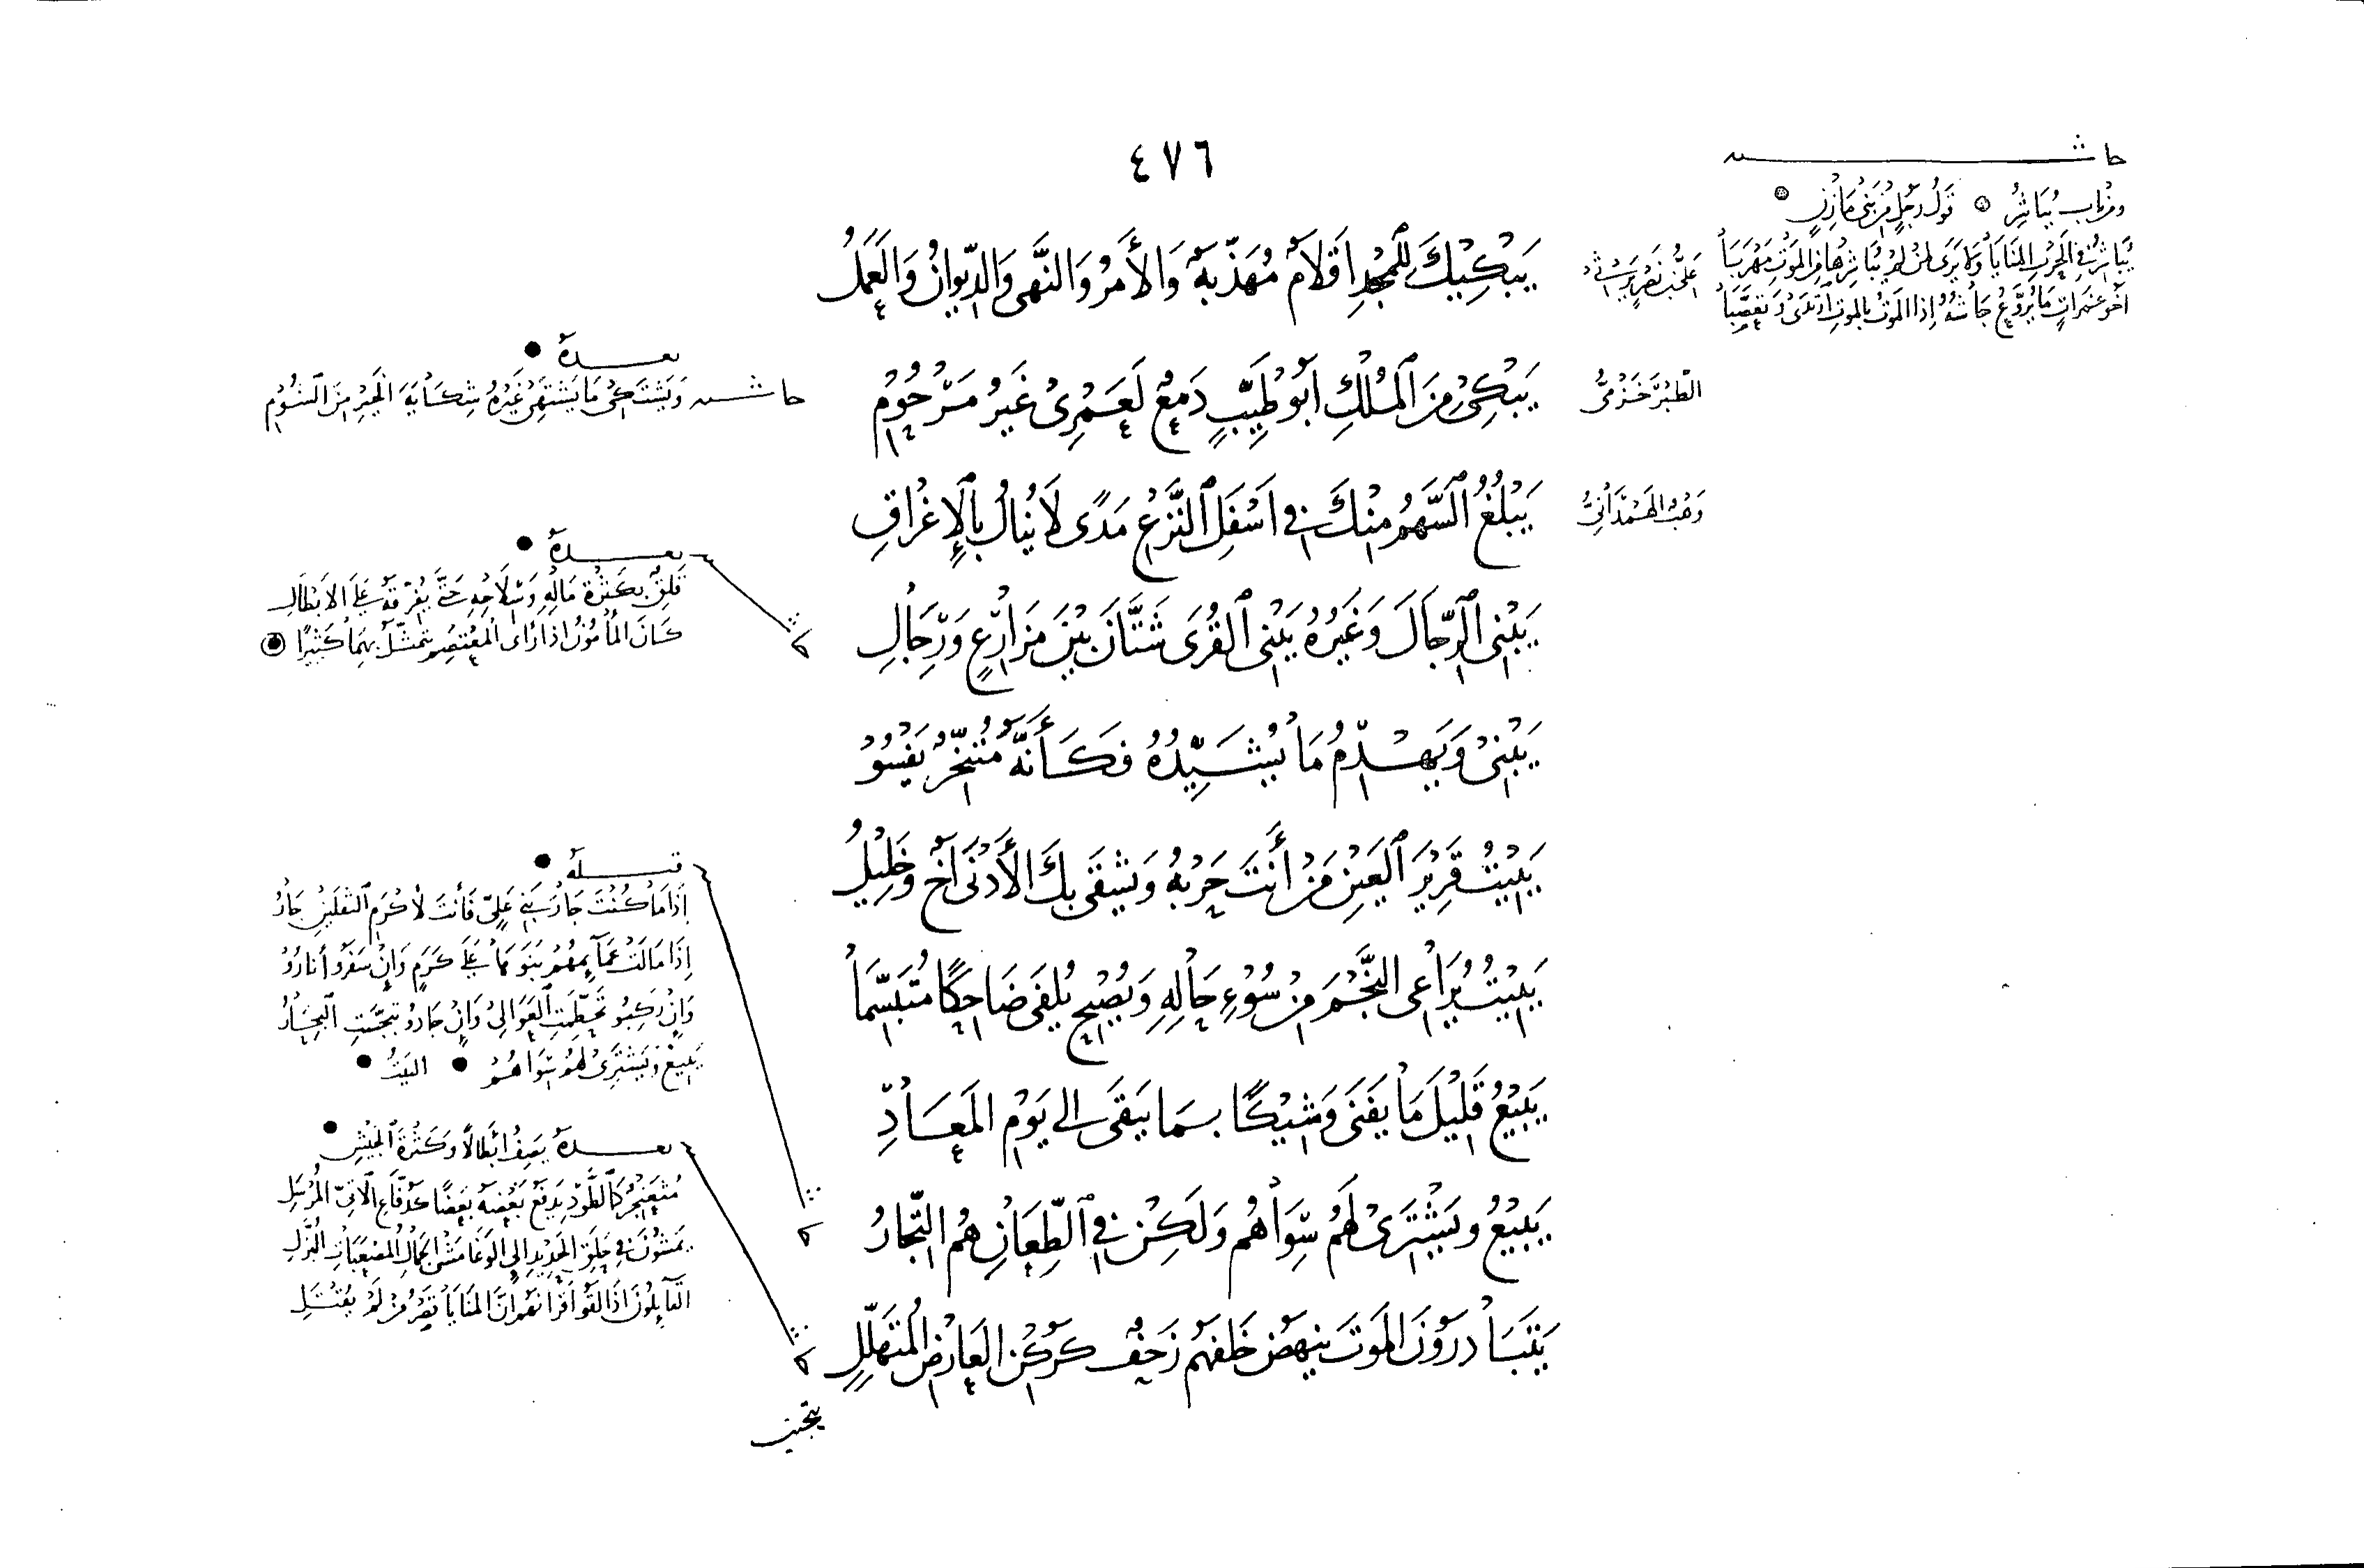 ٤٧٦
حاشية
ومن باب يُبَاشِرُ قَولُ رجلٍ من بَني مَازِنٍ
يُبَاشِرُ في الحَربِ المنَايَا وَلا يَرَى لمن لم يُبَاشِرْهَا من المَوتِ مَهْرَبَا
أخو غمَراتٍ مَا يُرَوَّعُ جَأشُهُ إذا الموتُ بالموتِ ارتَدَى وَتعَصَّبَا
يَبْكِيْكَ لِلمَجْدِ اَقلَامٌ مُهَذّبَهٌ وَالأَمرُ وَالنَّهي وَالدِّيوَانُ وَالعَمَلُ
الطَبَرْخَزْمِيُّ
يَبْكِيْ مِنَ المُلْكِ أبُو طَيِّبٍ دَمعٌ لَعَمْرِيْ غَيرُ مَرْحُوْمِ
حاشية بعده
وَيَشْتَكِيْ مَا يَشْتَهِي غَيْرُهُ شِكَايَهَ الخَيْرِ مِنَ الشُوْمِ
وَهْبُ الهَمْدَانِيُّ
يَبْلُغُ السَّهمُ مِنْكَ في اَسْفَلِ النَّزْعِ مَدًى لَا يُنَالُ بِالإِغْرَاقِ
يَبْنِي الرِّجَالَ وَغَيْرُهُ يَبْنِي القُرَى شَتَّانَ بَيْنَ مَزَارِعٍ وَرِجَالِ
بعده
قَلِقٌ بِكَثْرَةِ مَالِهِ وَسِلَاحِهِ حَتَّى يُفَرِّقَهُ عَلَى الابْطَالِ
كَانَ المأمُوْنُ اذا رَأى المُعْتَصِمَ تمثّلَ بِهِمَا كَثِيْرًا
يَبْنِيْ وَيَهْدِمُ مَا يُشَيِّدُهُ فَكَأَنَّهُ مُتَبَخِّرٌ يَفْسُوْ
يَبِيْتُ قَرِيْرَ العَيْنِ مَنْ أَنتَ حَرْبهُ وَيَشقَى بِكَ الأَدْنَى أخٌ وَخَلِيْلُ
يَبِيْتُ يُرَاعِي النَّجْمَ مِنْ سُوْءِ حَالِهِ وَيُصْبِحُ يُلفَى ضَاحِكًا مُتَبَسِّمَا
يَبِيْعُ قَلِيْلَ مَا يَفنَى وَشِيْكًا بِمَا يَبقَى الى يَوْمِ المَعَادِ
يَبِيْعُ وَيَشْتَرِيْ لَهُمْ سِوَاهُم وَلَكِنْ في الطِّعَانِ هُمُ التِّجَارُ
قبله
إذَا مَا كُنْتَ جَارَ بَنِي عَلِيّ فَأنتَ لأكْرَمِ الثقلَيْنِ جَارُ
إذَا مَالَتْ عَمَآئِمهُمْ بَنَو مَا عَلَى كَرَمٍ وَإنْ سَفَرُو أنَارُوْ
وَإنْ رَكِبُو تَحَطّمَتِ العَوَالِيْ وَإنْ جَادُوْ تبَجَّسَتِ البِحَارُ
يَبِيْعُ وَيَشْتَرِيْ لهُمْ سِوَاهُمُ البَيْتُ
يَتَبَادرَوْنَ المَوتَ يَنهَضُ خَلفَهُم زَحْفٌ كَرُكْنِ العَارِضِ المُتَهَلِّلِ
بعده يَصِفُ أبْطَالاً وَكَثْرَةَ الجَيْشِ
مُثْعَنْجِرٌ كَالطَّوْدِ يَدفَعُ بَعْضهُ بَعضًا كَدُفّاعِ الآتِيّ المُرْسَلِ
يَمشُوْنَ في حَلَقِ الحَدِيْدِ الى الوَغَا مَشْيَ الجِمَالِ المُصْعَبَاتِ البُزَّلِ
القآئِلُوْنَ اذَا لقُو أقْرَانهُم انَّ المَنَايَا قَصْرُ مَنْ لَمْ يُقْتَلِ